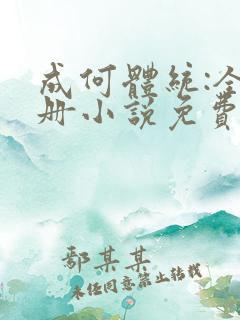 成何體統:全
册小說免費
鄢某某
未经同意禁止转载